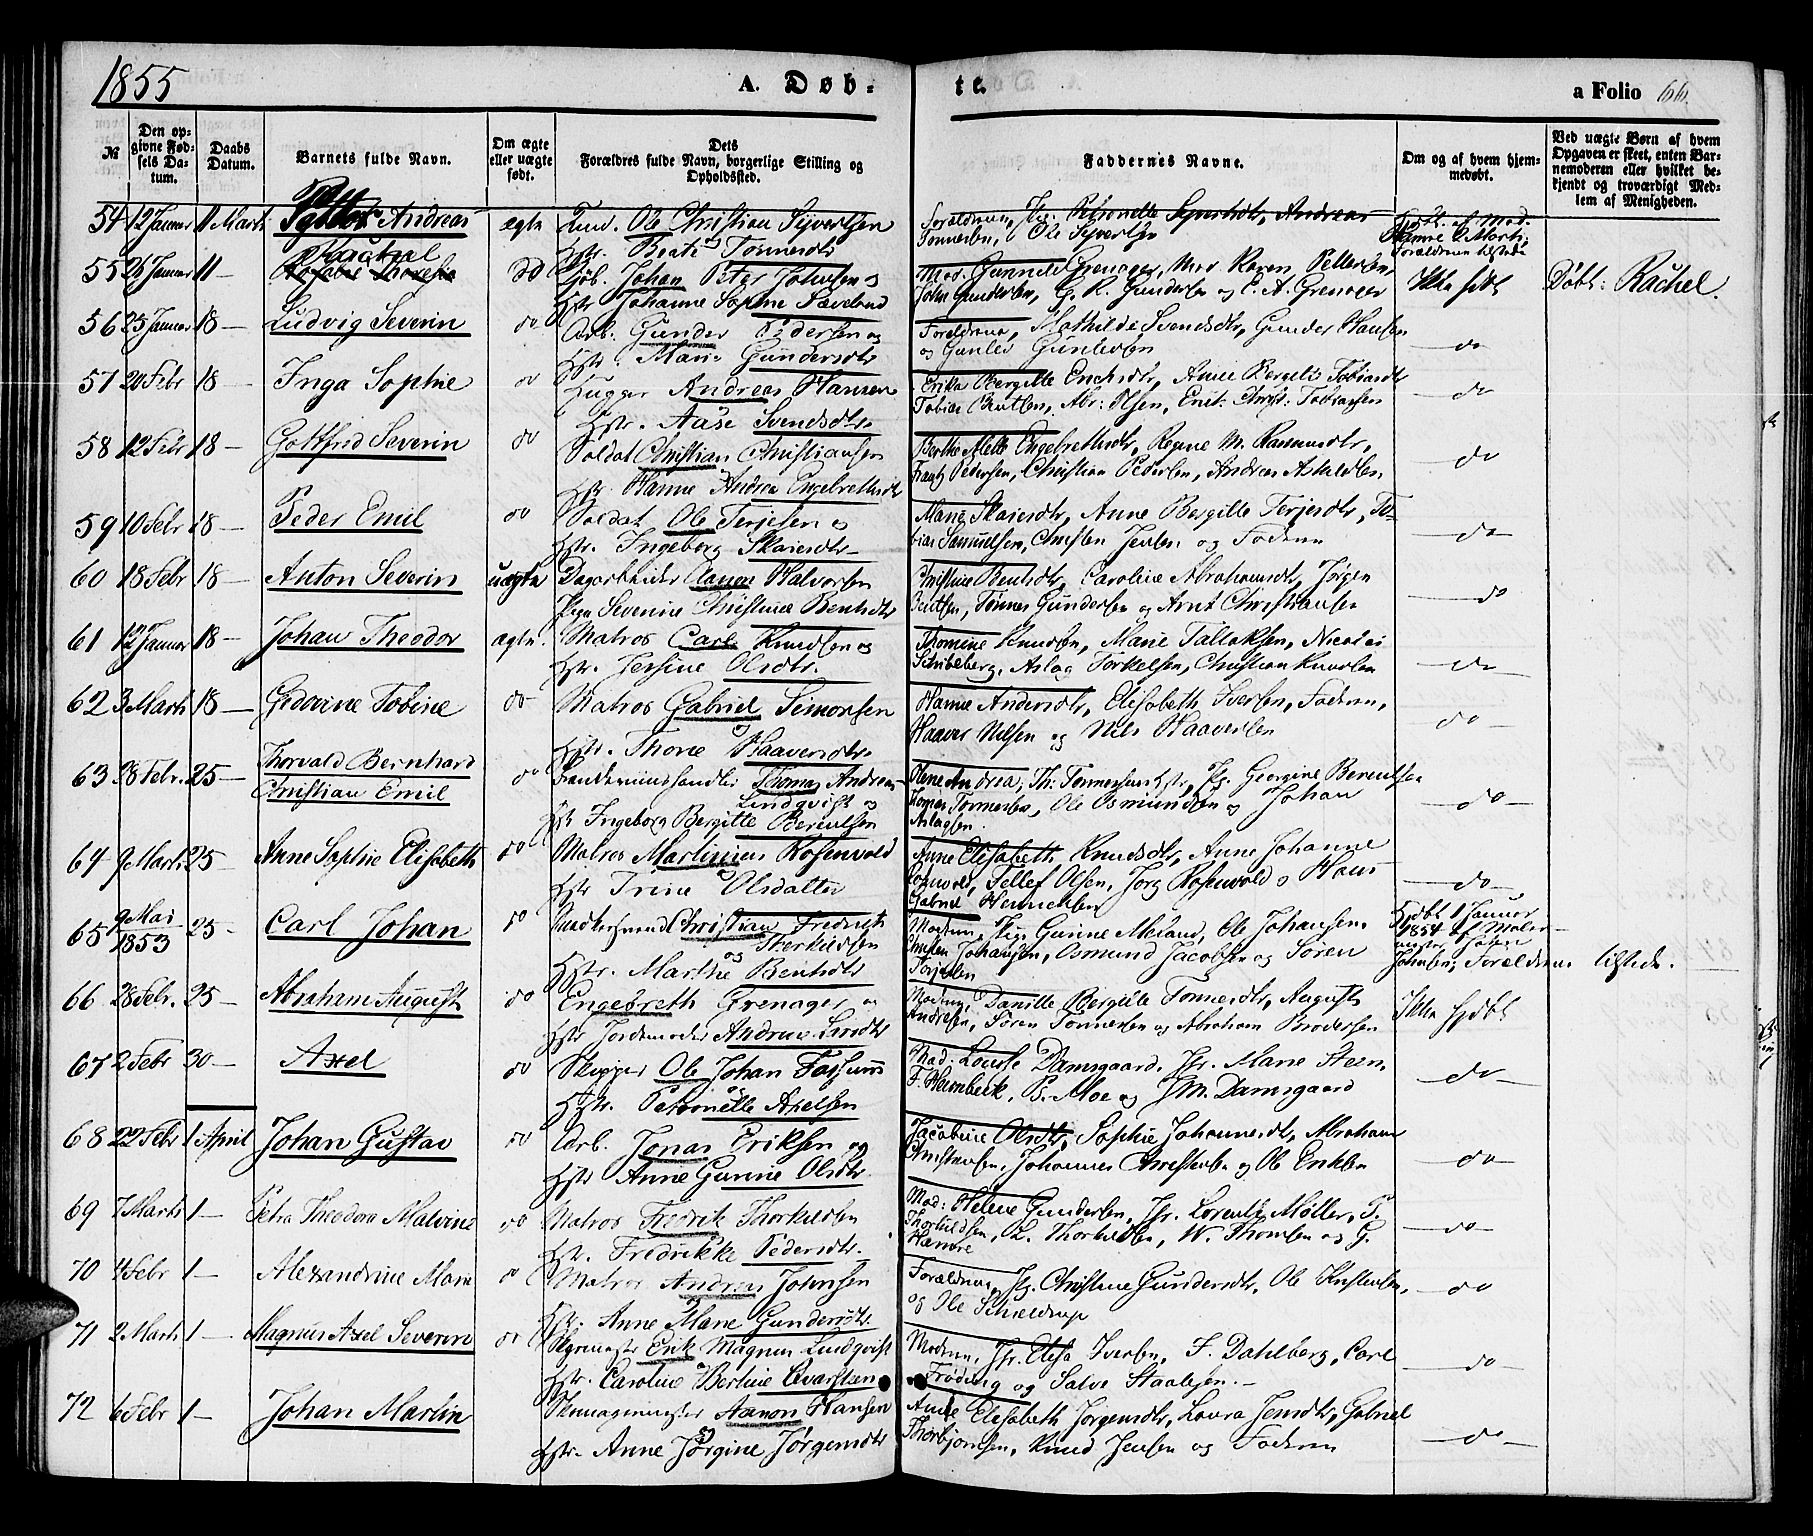 1855
A. Døb-
te.
a Folio 66.
№
Den opgivne Fødsels Datum.
Daabs Datum.
Barnets fulde Navn.
Om ægte eller uægte født.
Dets Forældres fulde Navn, borgerlige Stilling og Opholdssted.
Faddernes Navne.
Om og af hvem hjemmedøbt.
Ved uægte Børn af hvem Opgaven er skeet, enten Barnemoderen eller hvilket bekjendt og troværdigt Medlem af Menigheden.
54 12 Januar 11 Marts Andreas ægte Ole Christian Syvertsen
Hstr. Beate Tønnesdtr
Forældrene, Petronelle Syvertsdtr, Andreas
Tønnesen, Ole Syvertsen
Forældrene tilstede
55 26 Januar 11 — Rachel do Johan Peter Johnsen og
Hstr Johanne Sophie
Mad. Gunnild Grenager, Mad Karen Pettersen,
John Gundersen, G. K. Gundersen og E. A. Grenager
Ikke hjdbt
Døbt: Rachel.
56 25 Januar 18 — Ludvig Severin do Arb. Gunder Pedersen og
Hstr. Marie Gundersdtr
Forældrene, Mathilde Svendsdtr, Gunder Hansen
og Gunlev Gunlevsen
— do
57 20 Febr 18 — Inga Sophie do Andreas Hansen
Hstr. Aase Svendsdtr
Tobias, Abr: Olsen, Christ: Tobiassen
— do
58 12 Febr 18 — Gottfrid Severin do Soldat Christian Christiansen
Hstr. Hanne Andrea Engebretsdtr
Berthe Mette Engebretsdtr, Regine M. Rasmusdtr,
Frantz Pedersen, Christian Pedersen, Andreas Askildsen
— do
59 10 Febr 18 — Peder Emil do Soldat Ole Terjesen og
Hstr. Ingeborg
Anne Bergitte Terjesdtr, Tobias Samuelsen, Christen Jensen og Faderen
— do —
60 18 Febr 18 — Anton Severin uægte Dagarbeider Aanon Halvorsen
Pige Severine Christine Bentsdtr
Christine Bentsdtr, Caroline Abrahamsdtr, Jørgen
Bentsen, Tønnes Gundersen og Arnt Christiansen
— do
61 12 Januar 18 — Johan Theodor ægte. Matros Carl Knudsen og
Hstr. Jessine Olsdtr.
Thomine Knudsen, Marie Tallaksen, Nicolai
Aslag Torkelsen, Christian Knudsen
— do —
62 3 Marts 18 — Gedovine Tobine do — Matros Gabriel Simonsen
og
Hstr. Thone Haaversdtr.
Hanne Andersdtr, Elisabeth Iversen, Faderen,
Haaver Nilsen og Nils Haaversen
— do —
63 28 Febr. 25 — Thorvald Bernhard
Christian Emil do Thomas Andreas
Lindqvist og
Hstr Ingeborg Bergitte Berentsen
Olene Andrea, Th: Tønnessens Hstr, Georgine Berentsen
Tønnesen, Ole Osmundsen og Johan
Aslagsen.
— do —
64 9 Marts 25 — Anne Sophie Elisabeth do Matros Martinius Rosenvold
og
Hstr Trine Olsdatter
Anne Elisabeth Knudsdtr, Anne Johanne
Rosenvold, Tellef Olsen, Jørg Rosenvold og Hans
Gabriel Henriksen
— do —
65 9 Mai 1853 25 — Carl Johan do Christian Fredrik
Therkildsen
og
Hstr. Marthe Bentsdtr
Moderen, Gurine Meland, Ole Johansen,
Christen Johansen, Osmund Jacobsen og Søren
Terjesen
Hjdbt 1 Januar
1854 af Maler
Johan
Johnsen; Forældrene tilstede.
66 28 Febr. 25 — Abraham August do Engebreth Grenager og
Hstr Jordemoder Andrine
Moderen, Danille Bergitte Tønnesdtr, August
Andersen, Søren Tønnesen og Abraham Brodersen
Ikke hjdbt
67 2 Febr 30 — Axel do Skipper Ole Johan
og
Hstr. Petronelle Axelsen
Mad: Louise Damsgaard, Jfr. Marie Steen,
F. Heimbeck, P. Moe og J. M. Damsgaard
— do —
68 22 Febr 1 April Johan Gustav do Arb. Jonas Eriksen og
Hstr Anne Gurine Olsdtr.
Jacobine Olsdtr, Sophie Johannesdtr, Abraham
Christensen, Johannes Christensen og Ole Eriksen
— do —
69 7 Marts 1 — Petra Theodora Malvine do Matros Fredrik Thorkildsen
Hstr. Fredrikke Pedersdtr.
Mad: Helene Gundersen, Jfr. Lorentze Møller, T.
Thorkildsen, L. Thorkildsen, W. Thomsen og G.
— do —
70 4 Febr 1 — Alexandrine Marie do Matros Andreas Johnsen
og
Hstr. Anne Marie Gundersdtr.
Forældrene, Christine Gundersdtr, Ole Christensen,
og Ole Schieldrup
— do
71 2 Marts 1 — Magnus Axel Severin do Erik Magnus Lindqvist
og
Hstr. Caroline Bertine
Moderen, Jfr. Elisa Iversen, F. Dahlberg, Carl
Frøding og Salve Staalesen. —
— do —
72 6 Febr 1 — Johan Martin Skomagermester Aanon Hansen
og
Hstr. Anne Jørgine Jørgensdtr
Anne Elisabeth Jørgensdtr, Laura Jensdtr, Gabriel
Thorbjørnsen, Knud Jensen og Faderen
— do —